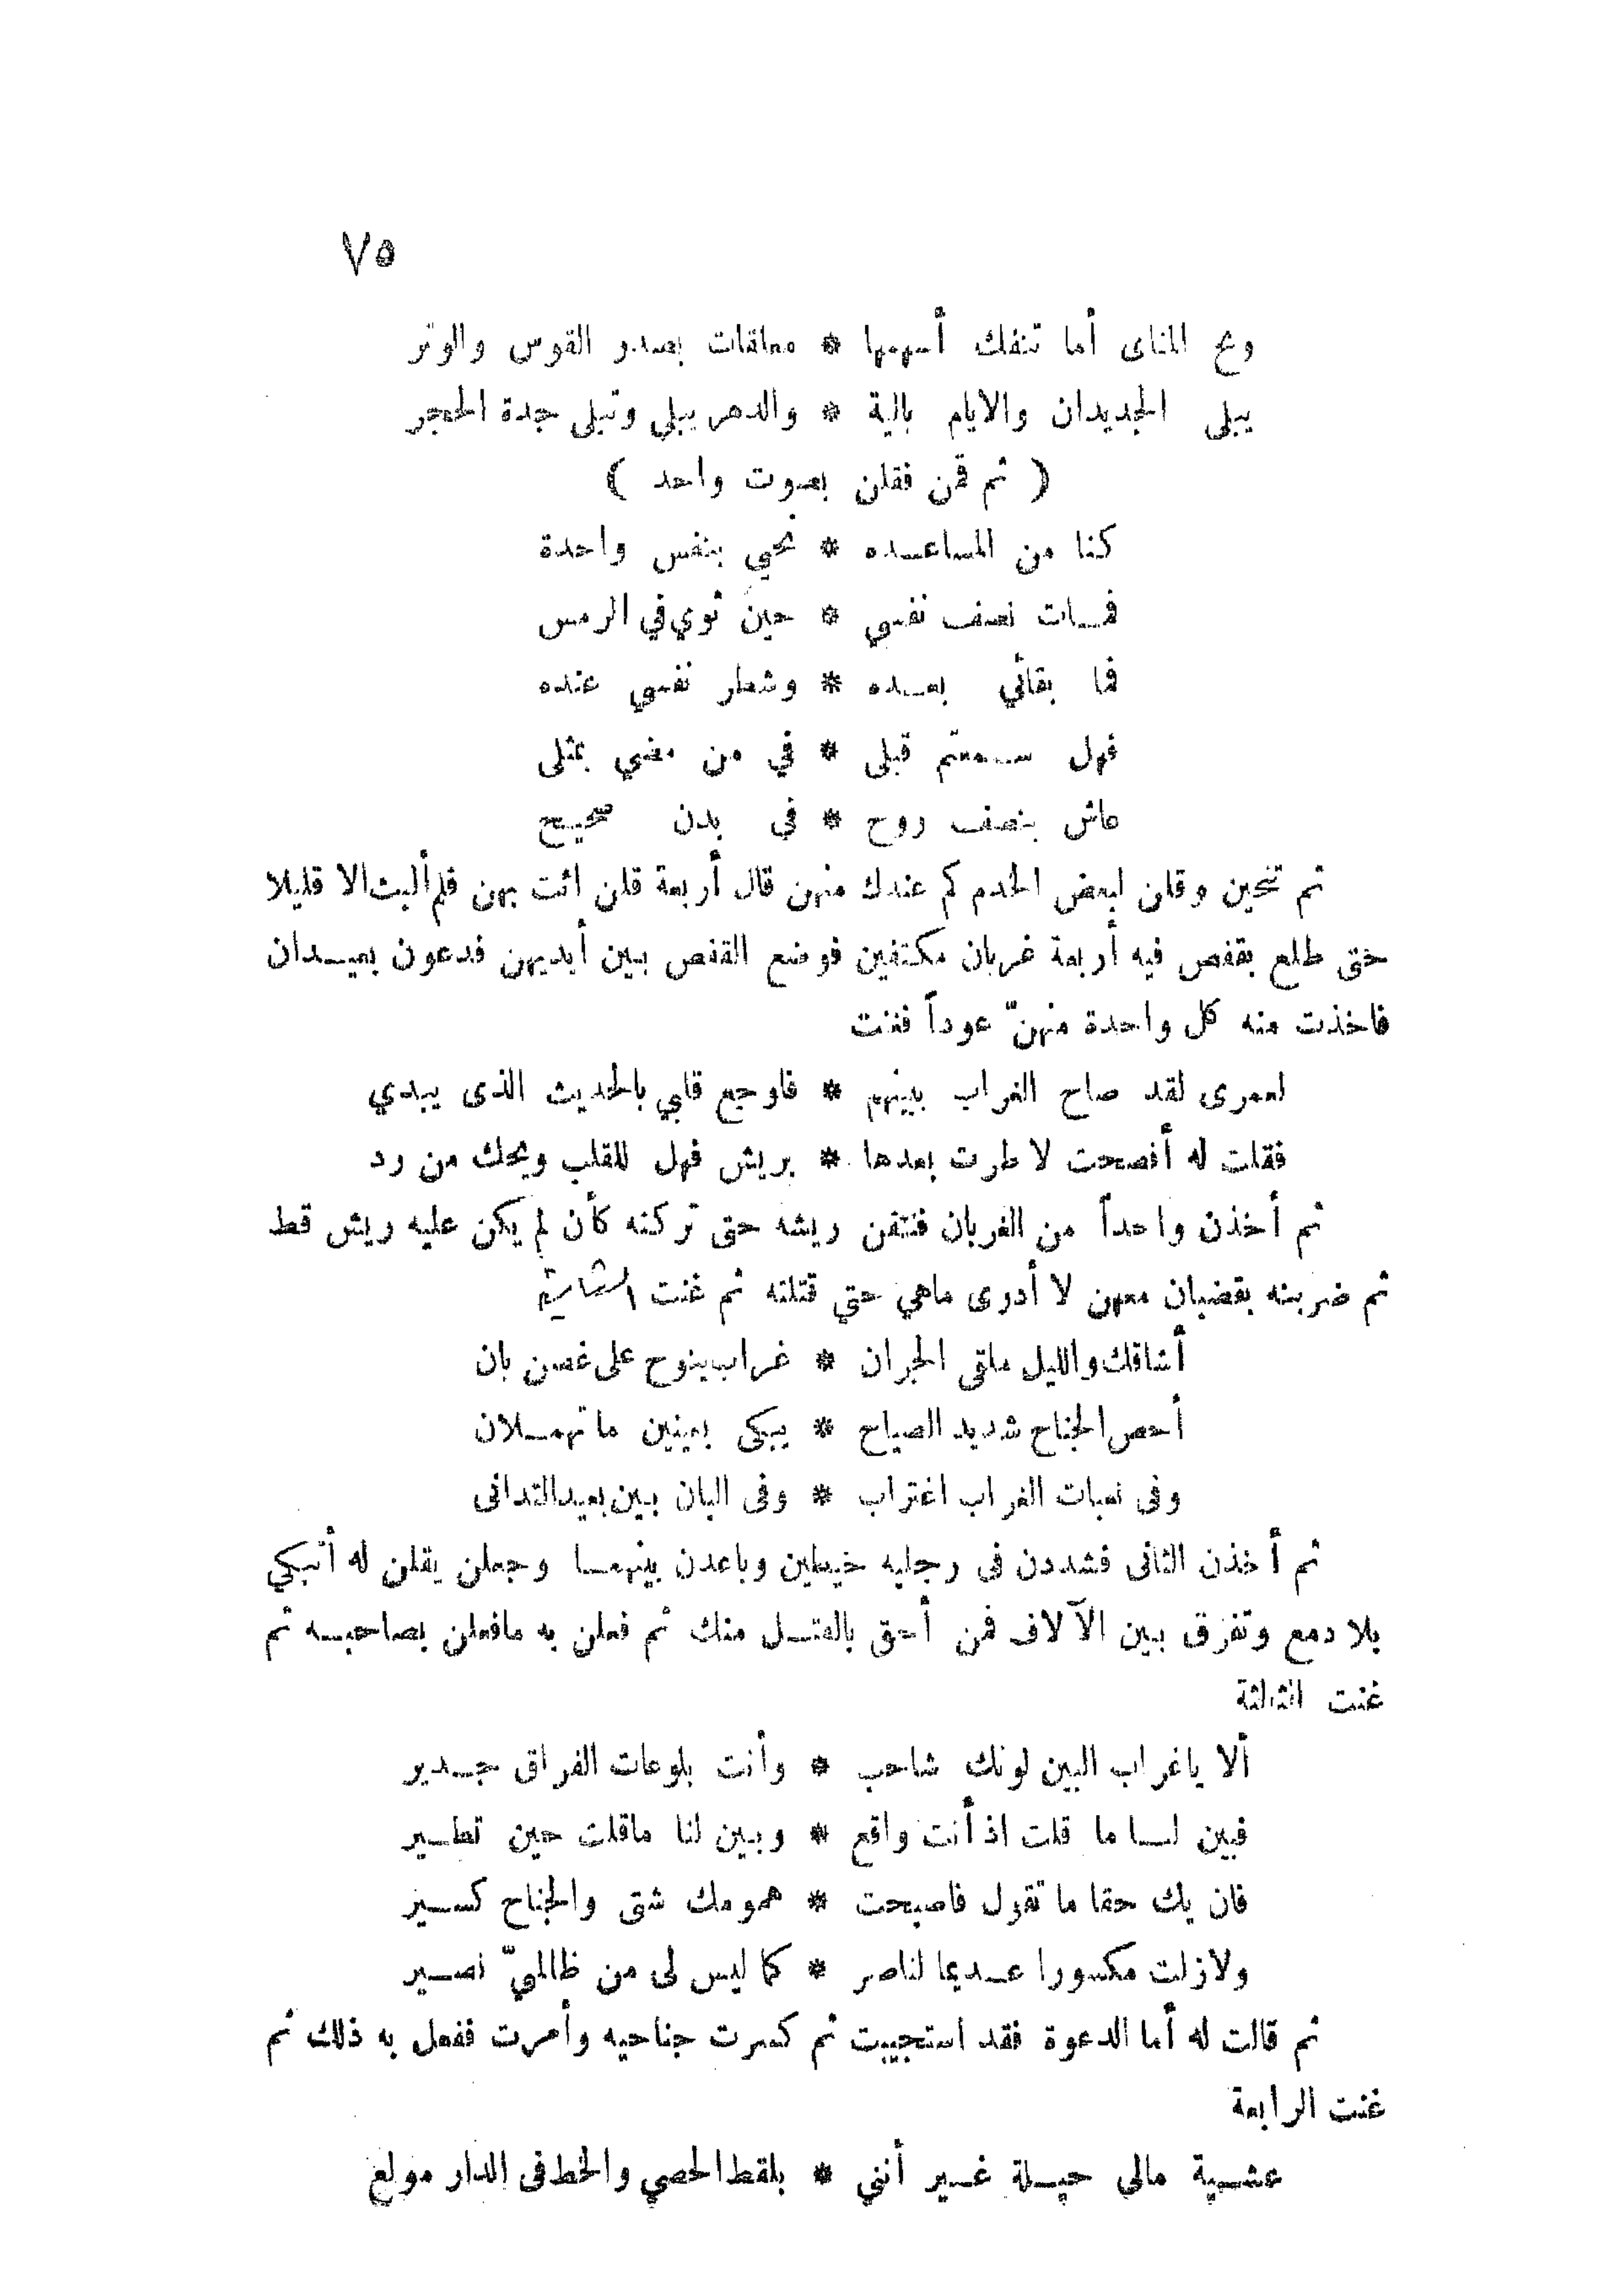 ٧٥
ويح المناى أما تنفك أسهمها * معلقات بصدر القوس والوتر
يبلى الجديدان والايام بالية * والدهر يبلى وتبلى جدة الحجر
( ثم قمن فقلن بصوت واحد )
كنا من المساعده * نحيي بنفس واحدة
فمات نصف نفسي * حين ثوي في الرمس
فما بقائي بعده * وشطر نفسي عنده
فهل سمعتم قبلى * في من مضي بمثلى
عاش بنصف روح * فى بدن صحيح
ثم تنحين وقلن لبعض الخدم كم عندك منهن قال أربعة قلن ائت بهن فلم ألبث الا قليلا
حتى طلع بقفص فيه أربعة غربان مكتفين فوضع القفص بين أيديهن فدعون بعيدان
فاخذت منه كل واحدة منهنّ عوداً فغنت
لعمرى لقد صاح الغراب ببينهم * فاوجع قلبي بالحديث الذى يبدي
فقلت له أفصحت لا طرت بعدها * بريش فهل للقلب ويحك من رد
ثم أخذن واحداً من الغربان فنتفن ريشه حتى تركنه كأن لم يكن عليه ريش قط
ثم ضربنه بقضبان معهن لا أدرى ماهي حتي قتلنه ثم غنت الثانية
أشاقك والليل ملقى الجران * غراب ينوح على غصن بان
أحص الجناح شديد الصياح * يبكى بعينين ما تهملان
وفى نعبات الغراب اغتراب * وفى البان بين بعيد التدانى
ثم أخذن الثانى فشددن فى رجليه خيطين وباعدن بينهما وجعلن يقلن له أتبكي
بلا دمع وتفرق بين الآلاف فمن أحق بالقتل منك ثم فعلن به مافعلن بصاحبه ثم
غنت الثالثة
ألا ياغراب البين لونك شاحب * وأنت بلوعات الفراق جدير
فبين لنا ما قلت اذ أنت واقع * وبين لنا ماقلت حين تطير
فان يك حقا ما تقول فاصبحت * همومك شتى والجناح كسير
ولازلت مكسورا عديما لناصر * كما ليس لى من ظالميّ نصير
ثم قالت له أما الدعوة فقد استجيبت ثم كسرت جناحيه وأمرت ففعل به ذلك ثم
غنت الرابعة
عشية مالى حيلة غير أنني * بلقط الحصي والخط فى الدار مولع